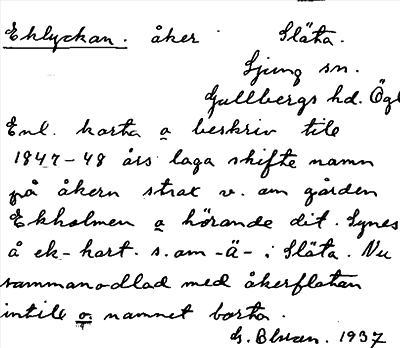 Eklyckan. åker Släta.
Ljung sn.
Gullbergs hd. Ögl
Enl. karta a beskriv till
1847-48 års laga skifte namn
på åkern strax v. om gården
Ekholmen a hörande dit. Synes
å ek-kart. s.om -Ä- i Släta. Nu
sammanodlad med åkerflatan
intill a namnet borta.
1937